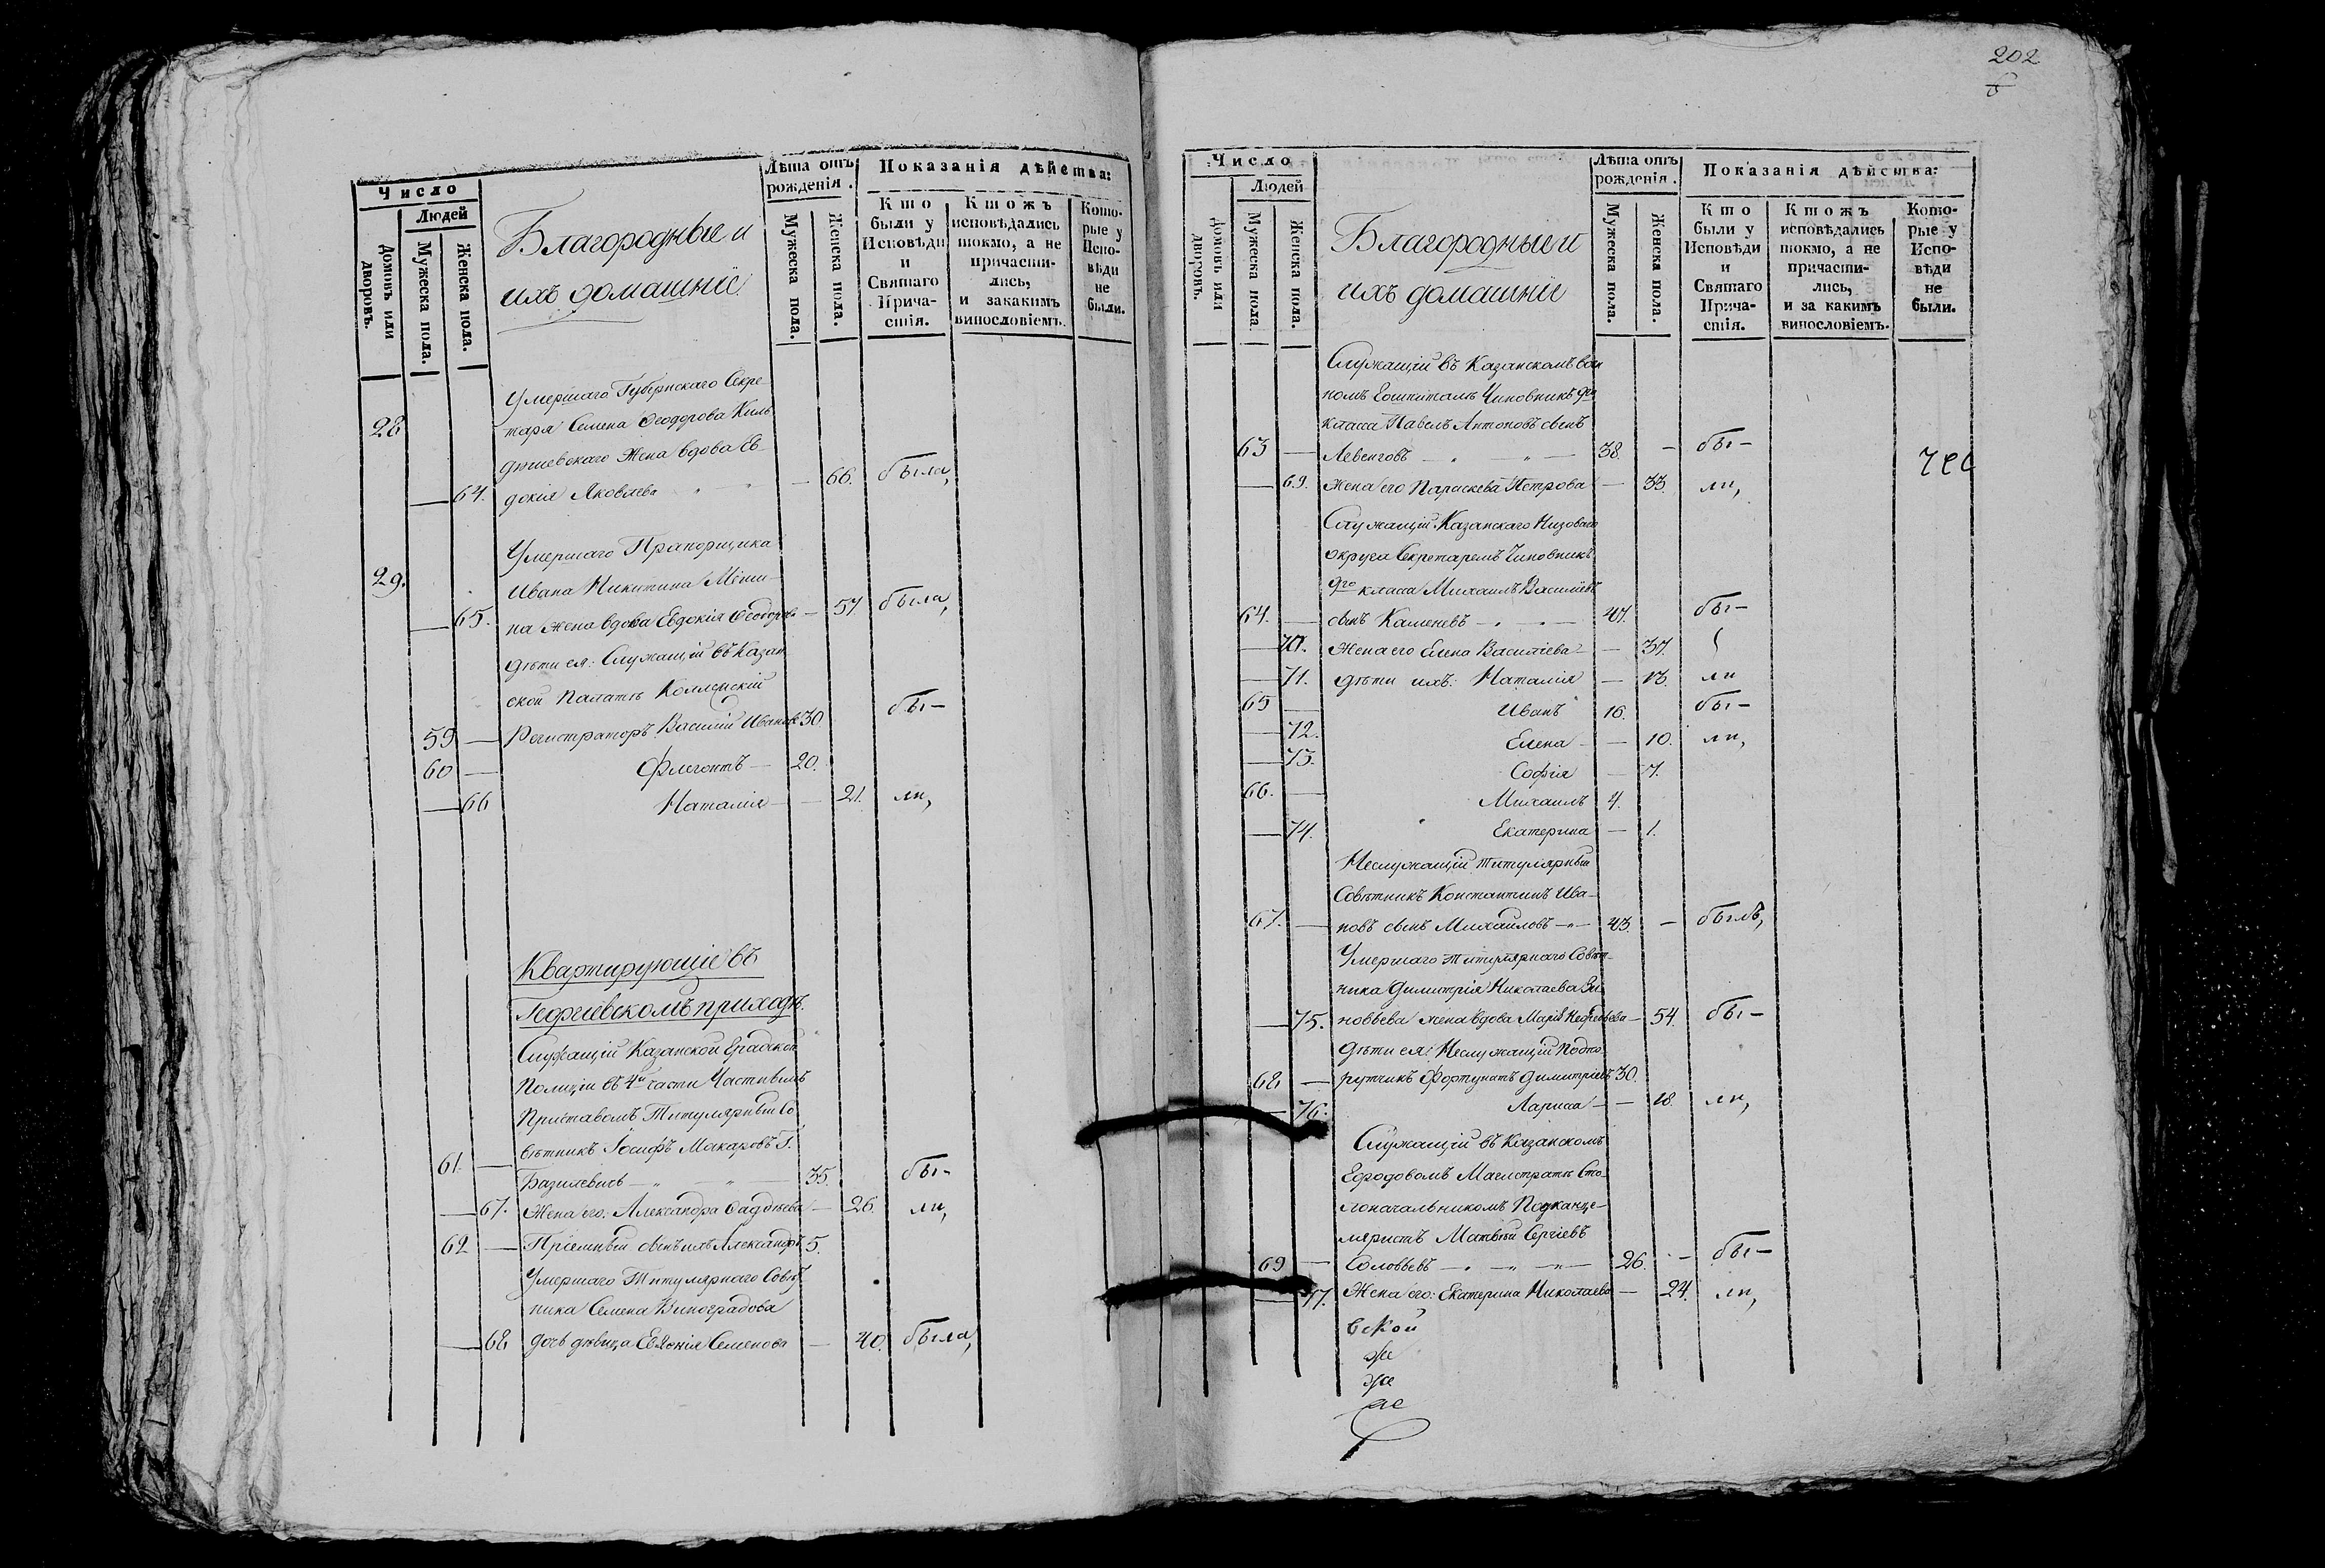 Число
Людей
Домовъ или дворовъ.
Мужеска пола.
Женска пола.
Благородные и
ихъ домашніе.
Лѣта отъ рожденія.
Мужеска пола.
Женска пола.
Показанія дѣйства:
Кто были у Исповѣди и Святаго Причастія.
Ктожъ исповѣдались токмо, а не причастились, и закакимъ винословіемъ.
Которые у Исповѣди не были.
Умершаго Губернскаго Секре-
28 таря Семена Ѳеодорова
жена вдова Ев-
— 64. докія Яковлева — 66. была,
Умершаго Прапорщика
29. Ивана Никитина
— 65. на жена вдова Евдокія Ѳеодорова — 57. была,
дѣти ея: Служащій въ Казан
ской Палатѣ Коллежскій
59 — Регистраторъ Василій Ивановъ 30. бы-
60 — Флегонтъ — 20.
— 66 Наталія — 21. ли,
Квартирующіе въ
Георгіевскомъ приходѣ.
Служащій Казанской Градской
Полиціи въ 4й части Частнымъ
Приставомъ Титулярный Со
вѣтникъ Іосифъ Макаровъ Г.
61. — Базилевичъ — 35 бы-
— 67. Жена его: Александра Фаддѣева — 26. ли,
62 — Пріемный сынъ ихъ Александръ 5.
Умершаго Титулярнаго Совѣт
ника Семена Виноградова
— 68 дочь дѣвица Евдокія Семенова — 40. была,
202
Число
Людей
Домовъ или дворовъ.
Мужеска пола
Женска пола.
Благородные и
ихъ домашніе
Лѣта отъ рожденія.
Мужеска пола.
Женска пола.
Показанія дѣйства:
Кто были у Исповѣди и Святаго Причастія.
Ктожъ исповѣдались токмо, а не причастились, и за какимъ винословіемъ.
Которые у Исповѣди не были.
Служащій въ Казанскомъ воен
номъ Гошпиталѣ Чиновникъ 9го
класса Павелъ Антоновъ сынъ
63 — Левенговъ — 38. — бы-
— 69. Жена его Параскева Петрова — 33. ли,
Служащій Казанскаго Низоваго
округа Секретаремъ Чиновникъ
9го класса Михаилъ Василіевъ
64. — сынъ Каменевъ — 47. бы-
— 70. Жена его Елена Василіева — 37.
— 71. дѣти ихъ: Наталія — 13. ли
65 — Иванъ 16. бы-
— 72. Елена — 10. ли,
— 73. Софія — 7.
66. — Михаилъ 4.
— 74. Екатерина — 1.
Неслужащій Титулярный
Совѣтникъ Константинъ Ива-
67. — новъ сынъ Михайловъ — 43. — былъ,
Умершаго Титулярнаго Совѣт-
ника Димитрія Николаева Зи-
— 75. новьева жена вдова Марія — 54. бы-
дѣти ея: Неслужащій Подпо-
68 — рутчикъ Фортунатъ Димитріевъ 30.
— 76. Лариса — 18. ли,
Служащій въ Казанскомъ
Городовомъ Магистратѣ Сто-
лоначальникомъ Подканце-
ляристъ Матвѣй Сергіевъ
69 — Соловьевъ — 26. — бы-
— 77. Жена его: Екатерина Николаева — 24. ли,
вской